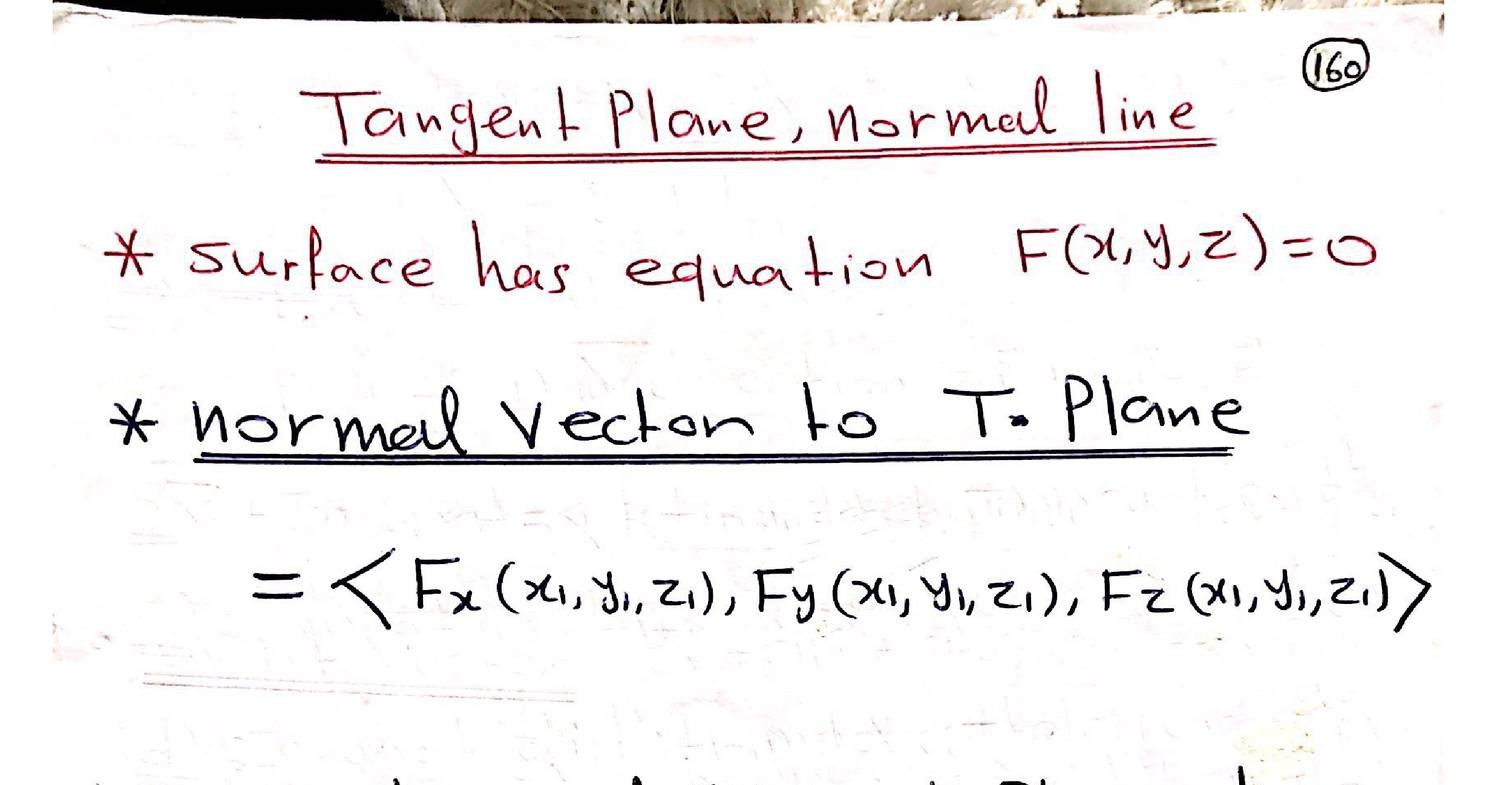 160
Tangent Plane, normal line
* surface has equation F(x,y,z)=0
* normal vector to T. Plane
= <Fx(x₁,y₁,z₁), Fy(x₁,y₁,z₁), Fz(x₁,y₁,z₁)>